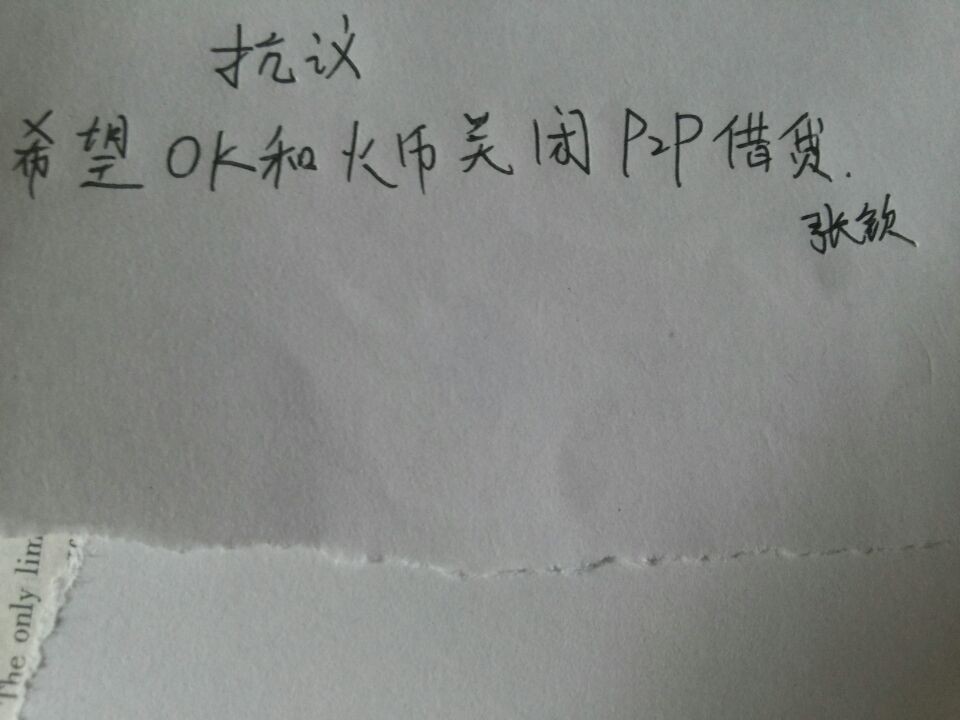 抗议
希望OK和火币关闭P2P借贷.
张钦
The only lim